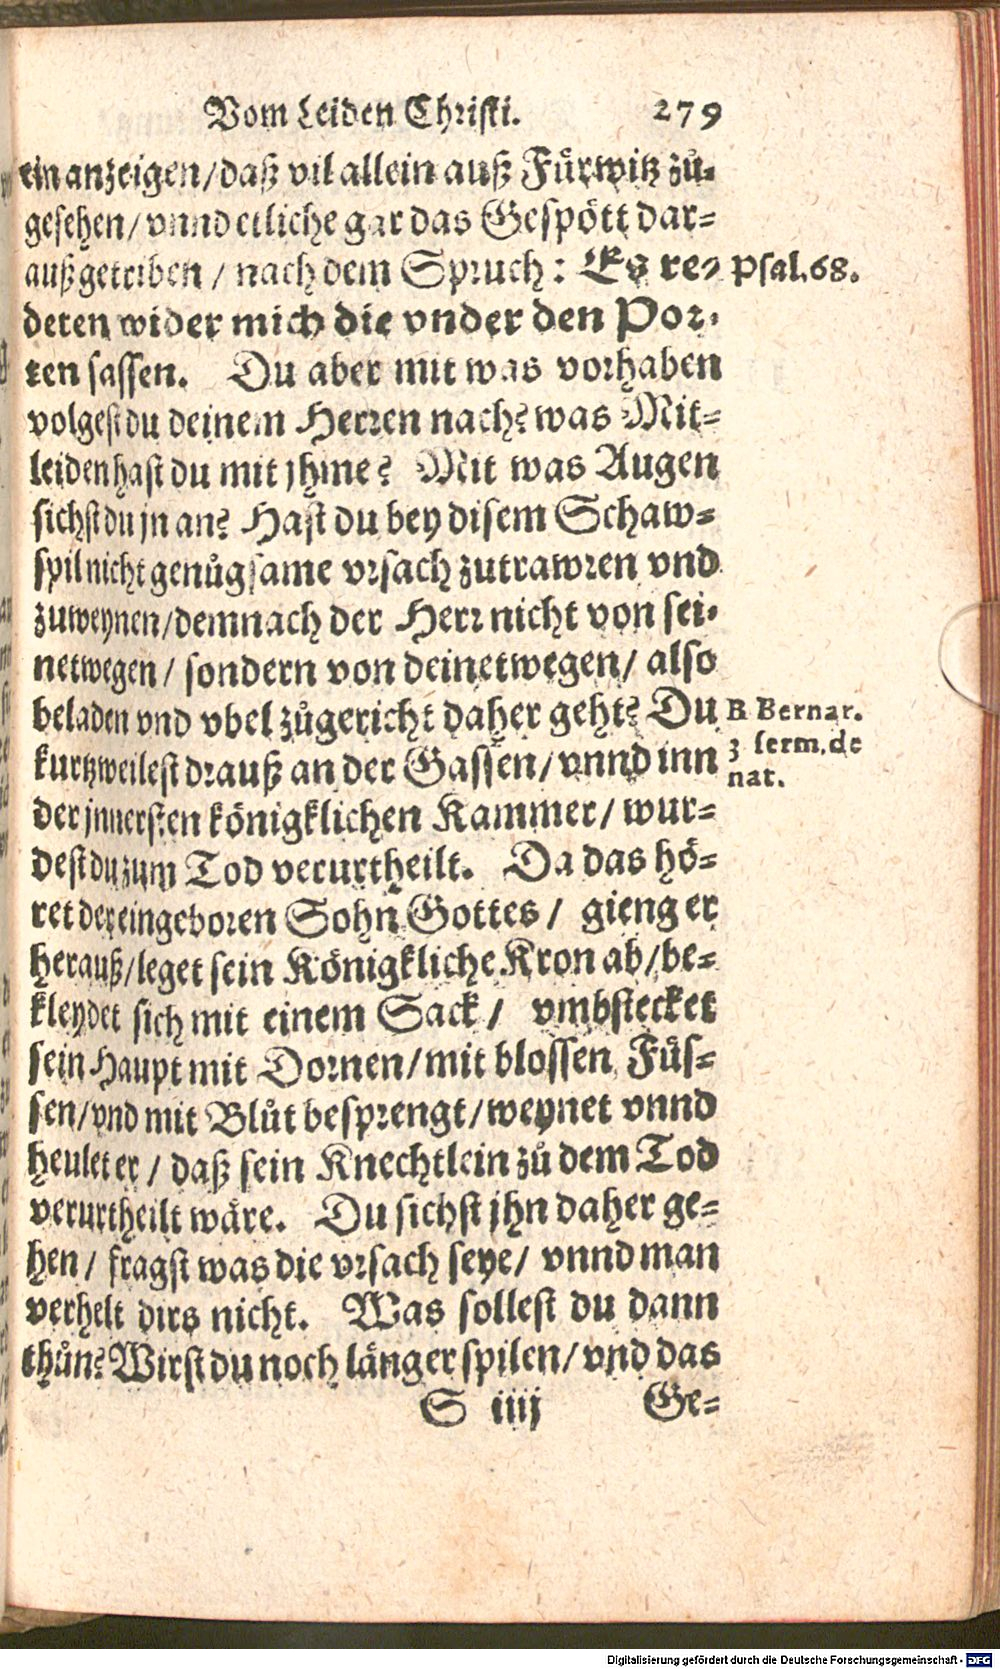 Vom Leiden Christi. 279
ein anzeigen/daß vil allein auß Fürwitz zů-
gesehen/vnnd etliche gar das Gespött dar-
auß getriben / nach dem Spruch: Es re-
Psal.68.
deten wider mich die vnder den Por-
ten sassen. Du aber mit was vorhaben
volgest du deinem Herren nach? was Mit-
leiden hast du mit jhme? Mit was Augen
sichst du jn an? Hast du bey disem Schaw-
spil nicht genůgsame vrsach zutrawren vnd
zuweynen/demnach der Herr nicht von sei-
netwegen/ sondern von deinetwegen/ also
beladen vnd vbel zůgericht daher geht? Du
B Bernar.
3 serm. de
nat.
kurtzweilest drauß an der Gassen/vnnd inn
der jnnersten königklichen Kammer/ wur-
dest du zum Tod verurtheilt. Da das hö-
ret der eingeboren Sohn Gottes / gieng er
herauß/leget sein Königkliche Kron ab/be-
kleydet sich mit einem Sack / vmbstecket
sein Haupt mit Dornen/mit blossen Füs-
sen/vnd mit Blůt besprengt/weynet vnnd
heulet er / daß sein Knechtlein zů dem Tod
verurtheilt wäre. Du sichst jhn daher ge-
hen/ fragst was die vrsach seye/ vnnd man
verhelt dirs nicht. Was sollest du dann
thůn? Wirst du noch länger spilen/vnd das
S iiij Ge-
Digitalisierung gefördert durch die Deutsche Forschungsgemeinschaft - DFG